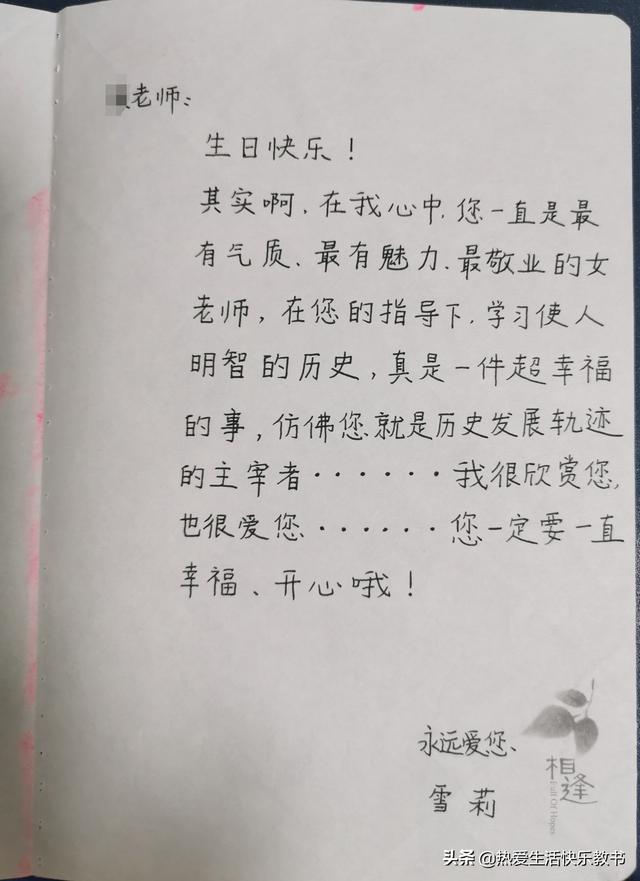 老师:
生日快乐!
其实啊、在我心中,您一直是最
有气质、最有魅力、最敬业的女
老师,在您的指导下,学习使人
明智的历史,真是一件超幸福
的事,仿佛您就是历史发展轨迹
的主宰者······我很欣赏您,
也很爱您······您一定要一直
幸福、开心哦!
永远爱您、
雪莉
相逢
Full Of Hopes
头条 @热爱生活快乐教书